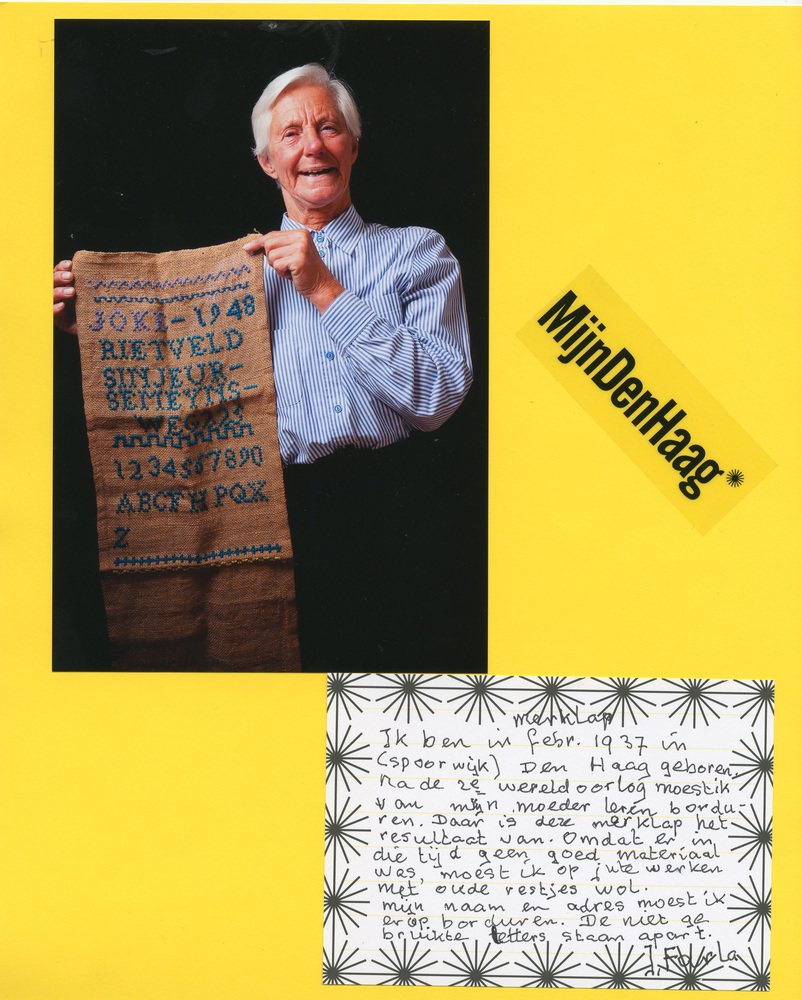 JOKE-1948
RIETVELD
SINJEUR-
SEMEYNS-
WEG 233
1234567890
ABCFHPQX
Z
MijnDenHaag*
merklap
Ik ben in febr. 1937 in
(spoorwijk) Den Haag geboren.
Na de 2e wereldoorlog moest ik
van mijn moeder leren bordu-
ren. Daar is deze merklap het
resultaat van. Omdat er in
die tijd geen goed materiaal
was, moest ik op jute werken
met oude restjes wol.
mijn naam en adres moest ik
erop borduren. De niet ge
bruikte letters staan apart.